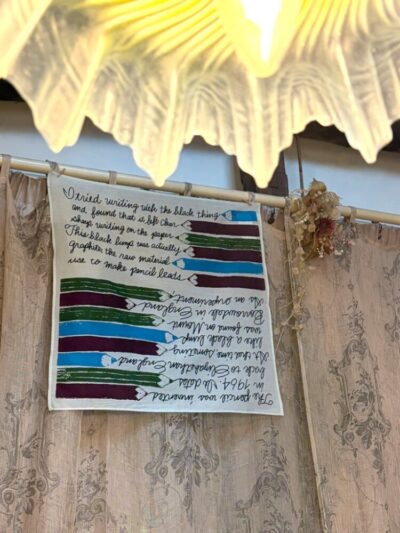 The pencil was invented
in 1964 dates
back to Elizabethan England
At that time, something
like a black lump
was found in Mount
Borrowdale in England
As an experiment
I tried writing with the black thing
and found that it left char
shaye writing on the paper.
This black lump was actually
graphite, the raw material
use to make pencil leads.